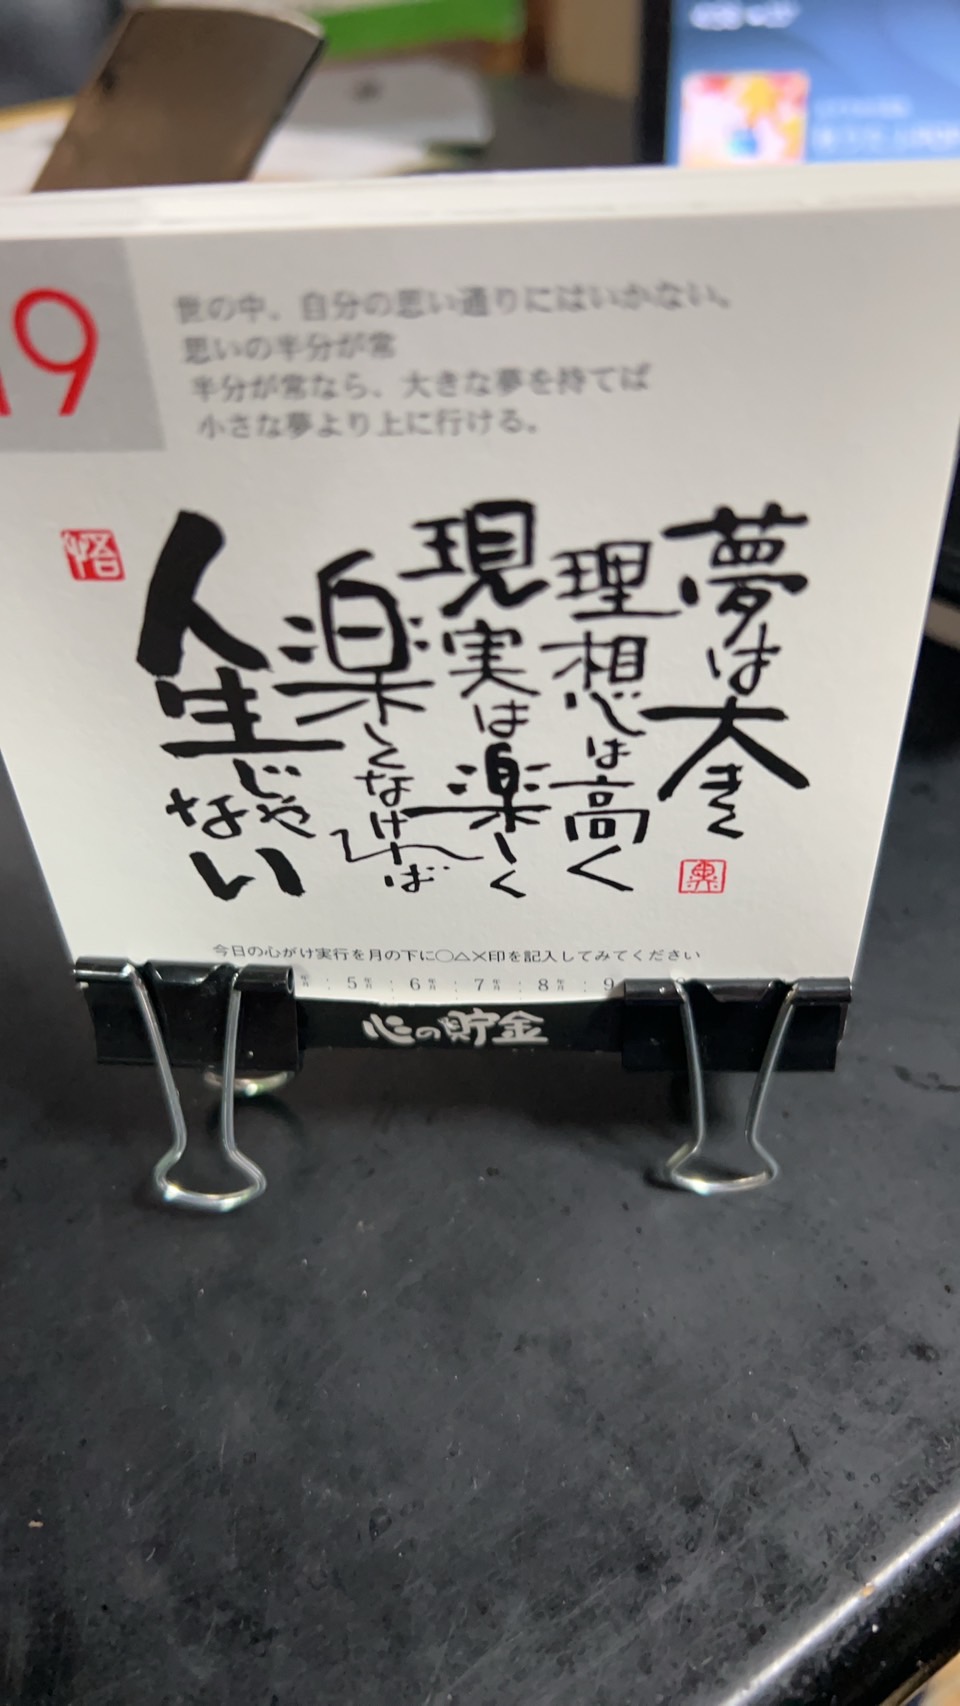 19
世の中、自分の思い通りにはいかない。
思いの半分が常
半分が常なら、大きな夢を持てば
小さな夢より上に行ける。
夢は大きく
理想は高く
現実は楽しく
楽しくなければ
人生じゃない
悟
今日の心がけ実行を月の下に○△×印を記入してみてください
5月 6月 7月 8月 9
心の貯金